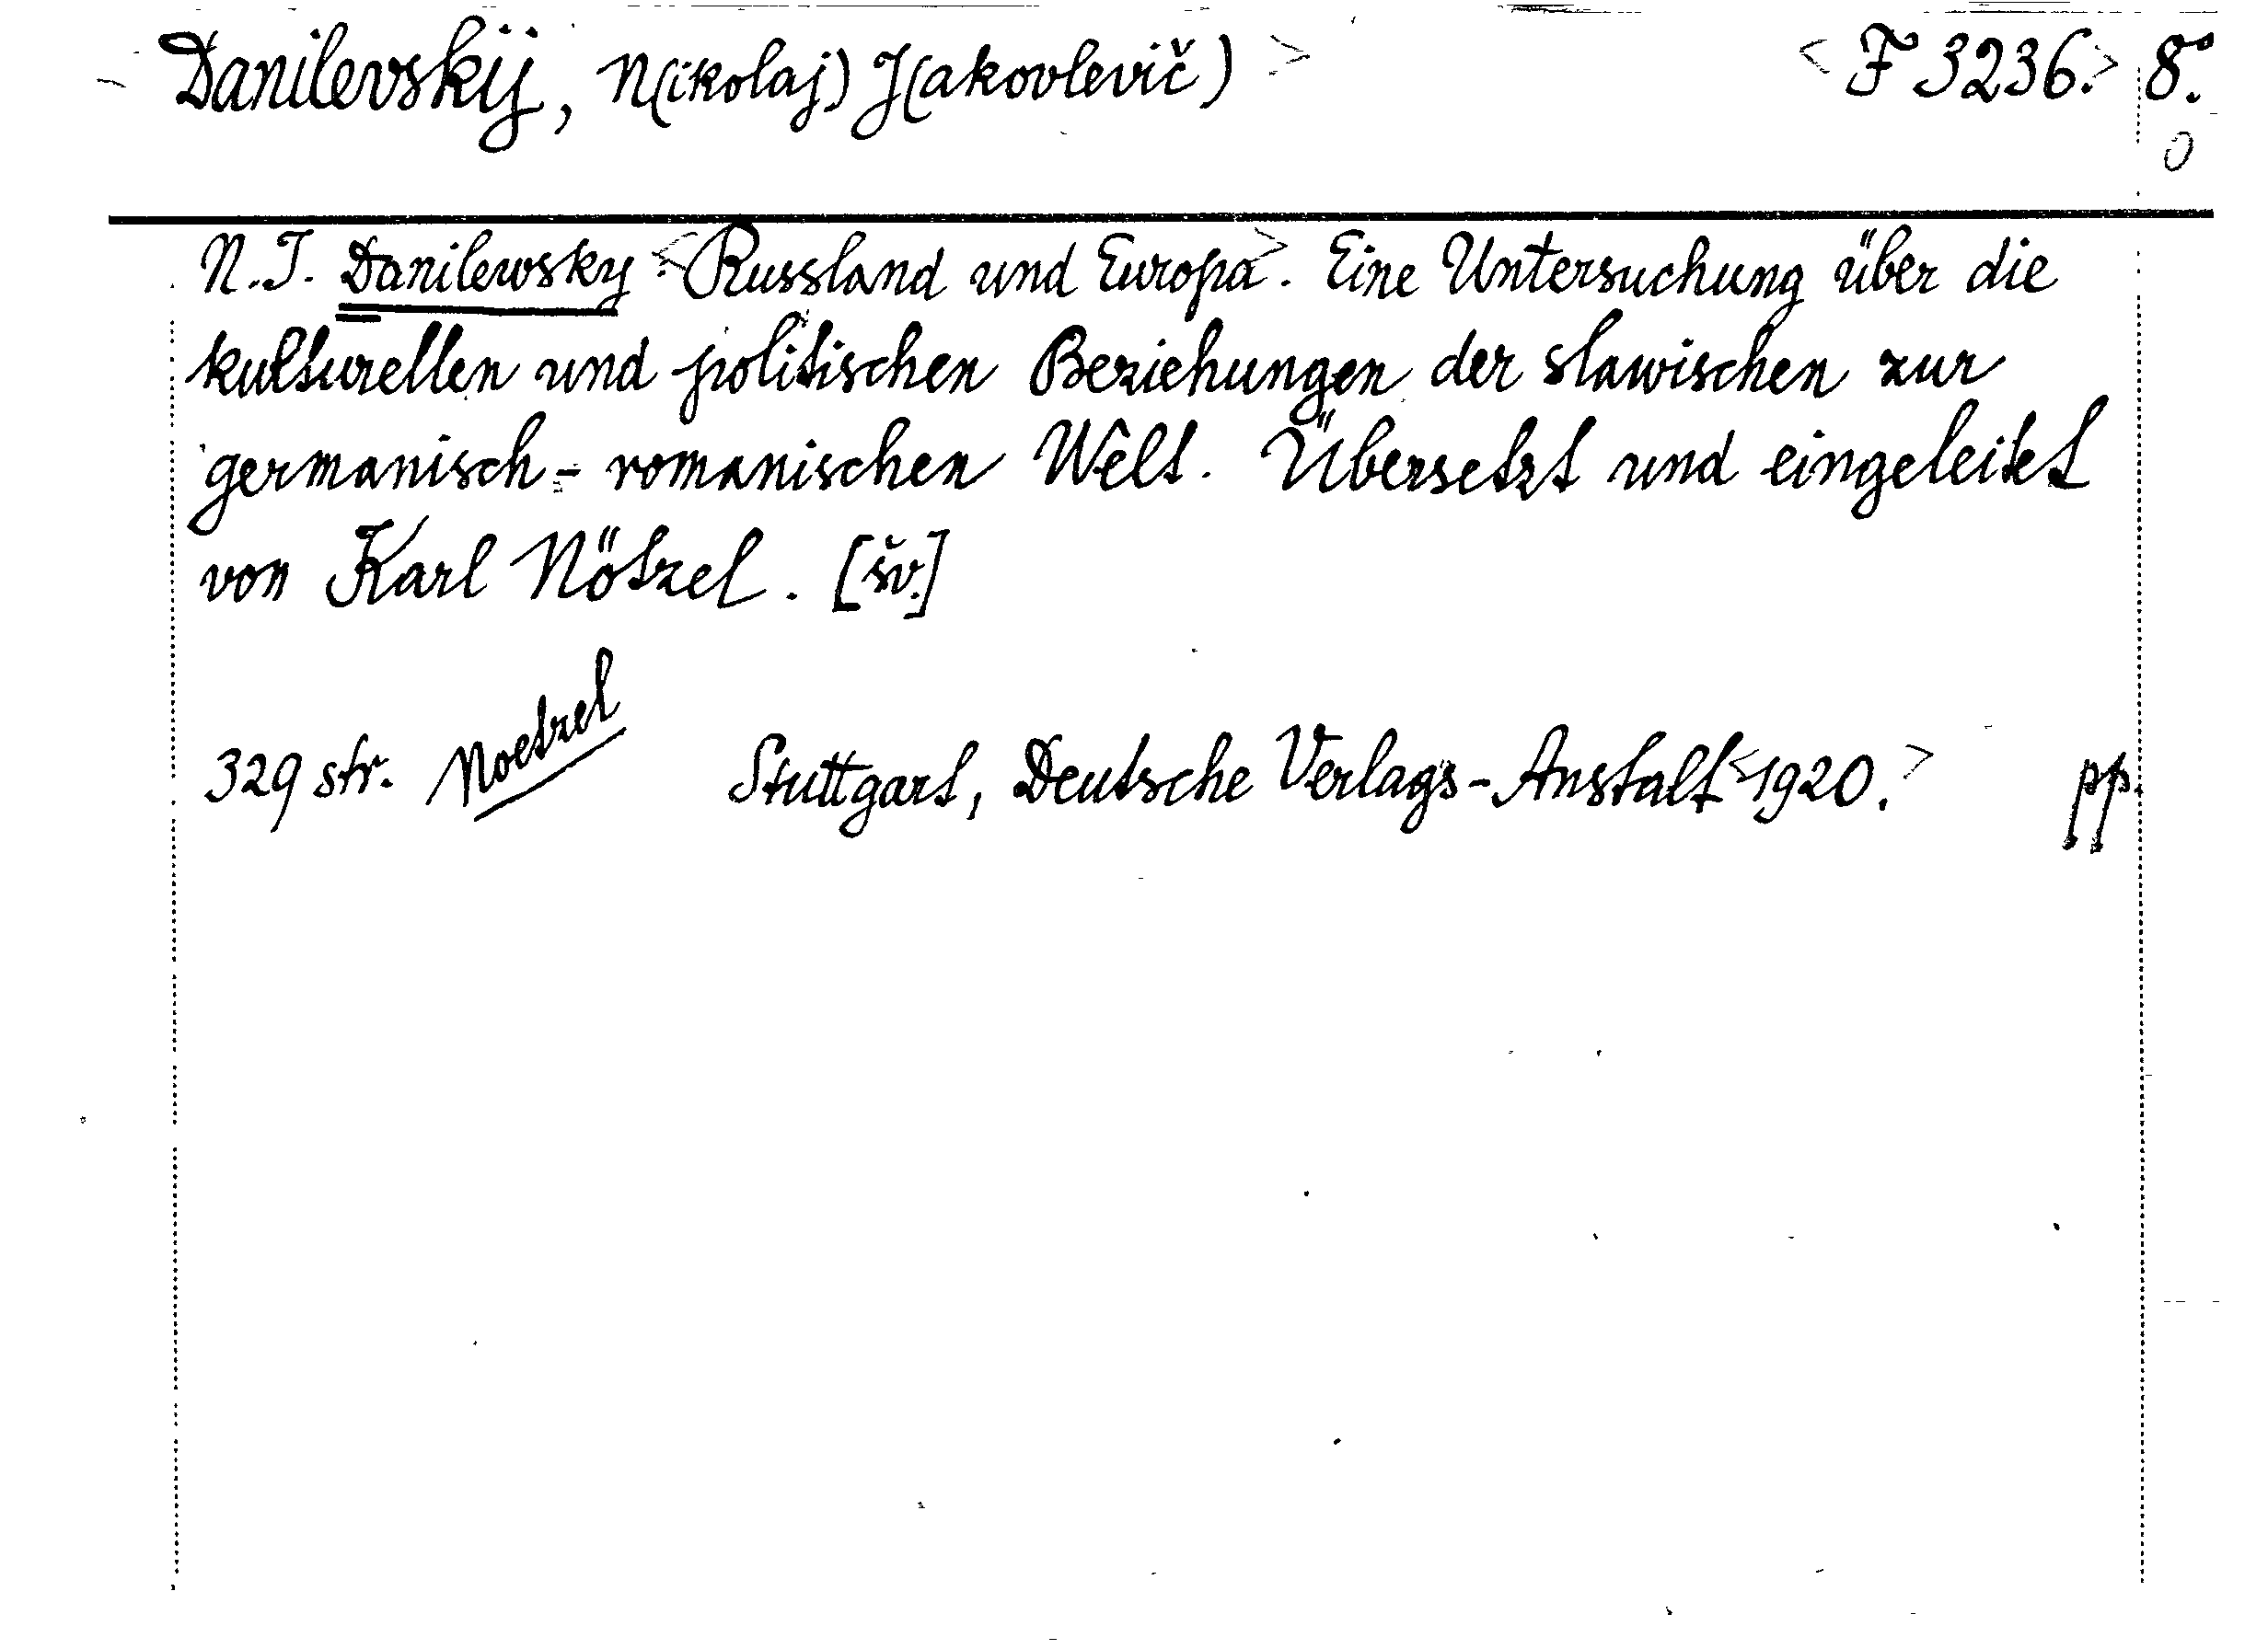 Danilevskij, N(ikolaj) J(akovlevič) > <F 3236.> 8°.
N.J. Danilewsky: <Russland und Europa>. Eine Untersuchung über die
kulturellen und politischen Beziehungen der slawischen zur
germanisch-romanischen Welt. Übersetzt und eingeleitet
von Karl Nötzel. [šv.]
329 str. Noetzel Stuttgart, Deutsche Verlags-Anstalt <1920.> pp.